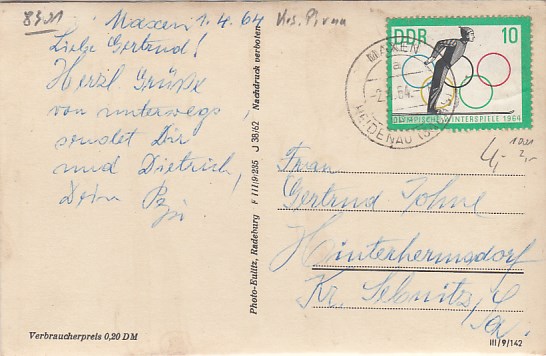 8401
Maxen 1.4.64 Krs. Pirna
Liebe Gertrud!
Herzl. Grüße
von unterwegs
sendet Dir
und Dietrich,
Dein
Nachdruck verboten
J 36/62
F III/9/285
Photo-Eulitz, Radeburg
DDR 10
OLYMPISCHE WINTERSPIELE 1964
MAXEN
a
64
HEIDENAU
Frau
Gertrud Johne
Hinterhermsdorf
Kr. Sebnitz,
Sa.
Verbraucherpreis 0,20 DM
III/9/142